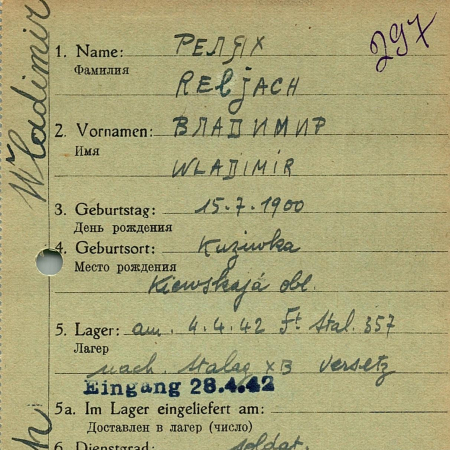 Wladimir
297
1. Name: РЕЛЯХ
Фамилия
RELJACH
2. Vornamen: ВЛАДИМИР
Имя
WLADIMIR
3. Geburtstag: 15.7.1900
День рождения
4. Geburtsort: Kuziwka
Место рождения
Kiewskajá obl.
5. Lager: am 4.4.42 Ft Stal. 357
Лагер
nach Stalag XB versetz
Eingang 28.4.42
5a. Im Lager eingeliefert am:
Доставлен в лагер (число)
6. Dienstgrad: soldat.